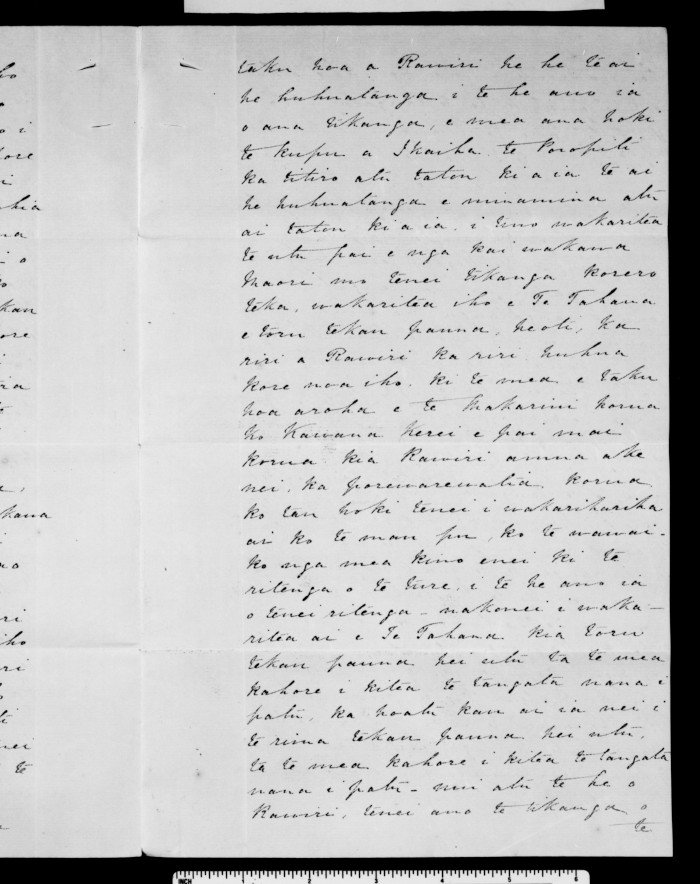 ho
o
o i
hore
i
hia
na
i o
ko
kau
ore
i
ra
a,
kana
i
no
ri
iho
ri
o
ti
nei
te
taku hoa a Rawiri he he te ai
he huhuatanga i te he ano ia
o ana tikanga, e mea ana hoki
te kupu a Ikaiha te Poropiti
ka titiro atu tatou ki a ia te ai
he huhuatanga e minamina atu
ai tatou ki a ia, i tino wakaritea
te utu pai e nga kai wakawa
Maori mo tenei tikanga korero
teka, wakaritea iho e Te Tahana
e toru tekau pauna, heoti, ka
riri a Rawiri ka riri huhua
kore noa iho, ki te mea e taku
hoa aroha e te Makarini korua
ko Kawana Kerei e pai mai
korua kia Rawiri amua ake
nei, ka porewarewatia korua
ko tau hoki tenei i wakarihariha
ai ko te mau pu, ko te wawai-
ko nga mea kino enei ki te
ritenga o te ture, i te he ano ia
o tenei ritenga - nakonei i waka-
ritea ai e Te Tahana kia toru
tekau pauna hei utu ta te mea
kahore i kitea te tangata nana i
patu, ka hoatu kau ai ia nei i
te rima tekau pauna hei utu,
ta te mea kahore i kitea te tangata
nana i patu - nui atu te he o
Rawiri, tenei ano te tikanga o
te
INCH 1 2 3 4 5 6